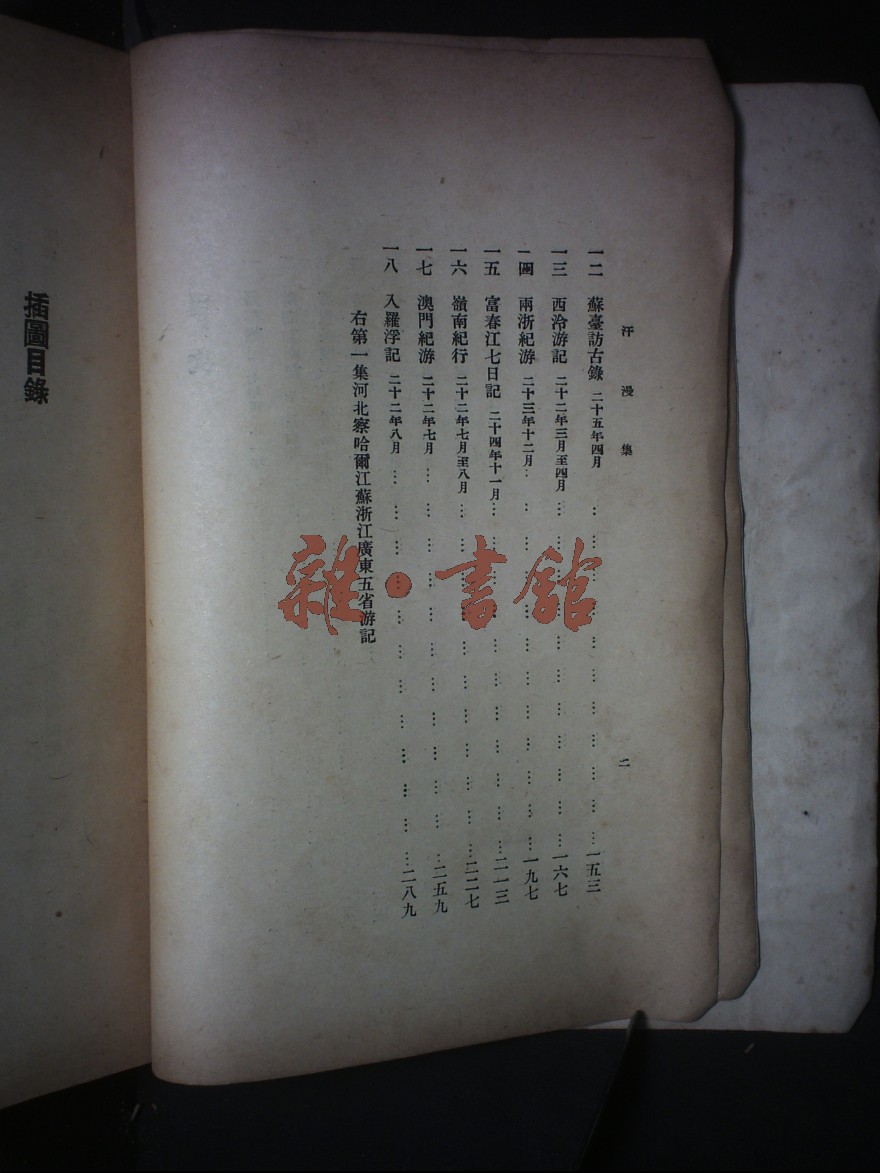 汗漫集 二
一二 蘇臺訪古錄 二十五年四月 …………………… 一五三
一三 西泠游記 二十二年三月至四月 …………………… 一六七
一四 兩浙紀游 二十三年十二月 …………………… 一九七
一五 富春江七日記 二十四年十一月 …………………… 二一三
一六 嶺南紀行 二十二年七月至八月 …………………… 二二七
一七 澳門紀游 二十二年七月 …………………… 二五九
一八 入羅浮記 二十二年八月 …………………… 二八九
右第一集河北察哈爾江蘇浙江廣東五省游記
插圖目錄
雜·書館